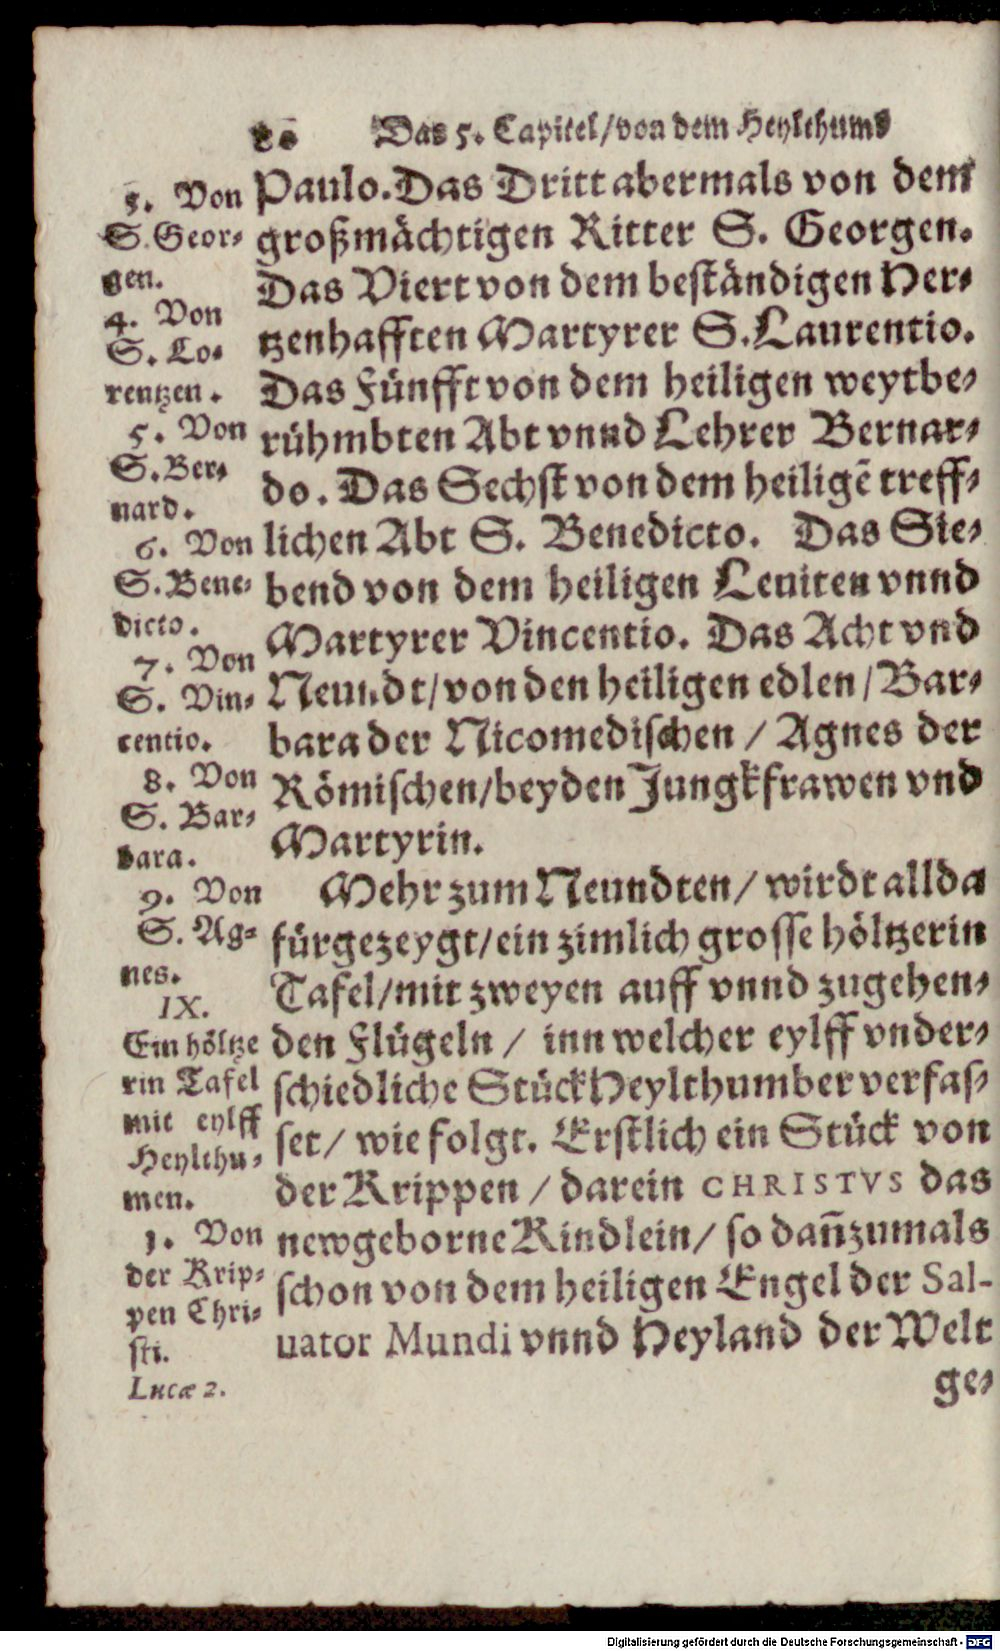 Das 5. Capitel/von dem Heylthums
Paulo. Das Dritt abermals von dem
großmächtigen Ritter S. Georgen.
Das Viert von dem beständigen Her-
tzenhafften Martyrer S. Laurentio.
Das Fünfft von dem heiligen weytbe-
rühmbten Abt vnnd Lehrer Bernar-
do. Das Sechst von dem heiligẽ treff-
lichen Abt S. Benedicto. Das Sie-
bend von dem heiligen Leuiten vnnd
Martyrer Vincentio. Das Acht vnd
Neundt/von den heiligen edlen/Bar-
bara der Nicomedischen / Agnes der
Römischen/beyden Jungkfrawen vnd
Martyrin.
Mehr zum Neundten/ wirdt allda
fürgezeygt/ein zimlich grosse höltzerin
Tafel/mit zweyen auff vnnd zugehen-
den Flügeln / inn welcher eylff vnder-
schiedliche Stück Heylthumber verfas-
set/ wie folgt. Erstlich ein Stück von
der Krippen / darein CHRISTVS das
newgeborne Kindlein/ so dañzumals
schon von dem heiligen Engel der Sal-
uator Mundi vnnd Heyland der Welt
ge-
3. Von
S. Geor-
gen.
4. Von
S. Lo-
rentzen.
5. Von
S. Ber-
nard.
6. Von
S. Bene-
dicto.
7. Von
S. Vin-
centio.
8. Von
S. Bar-
bara.
9. Von
S. Ag-
nes.
IX.
Ein höltze
rin Tafel
mit eylff
Heylthu-
men.
1. Von
der Krip-
pen Chri-
sti.
Lucæ 2.
Digitalisierung gefördert durch die Deutsche Forschungsgemeinschaft - DFG